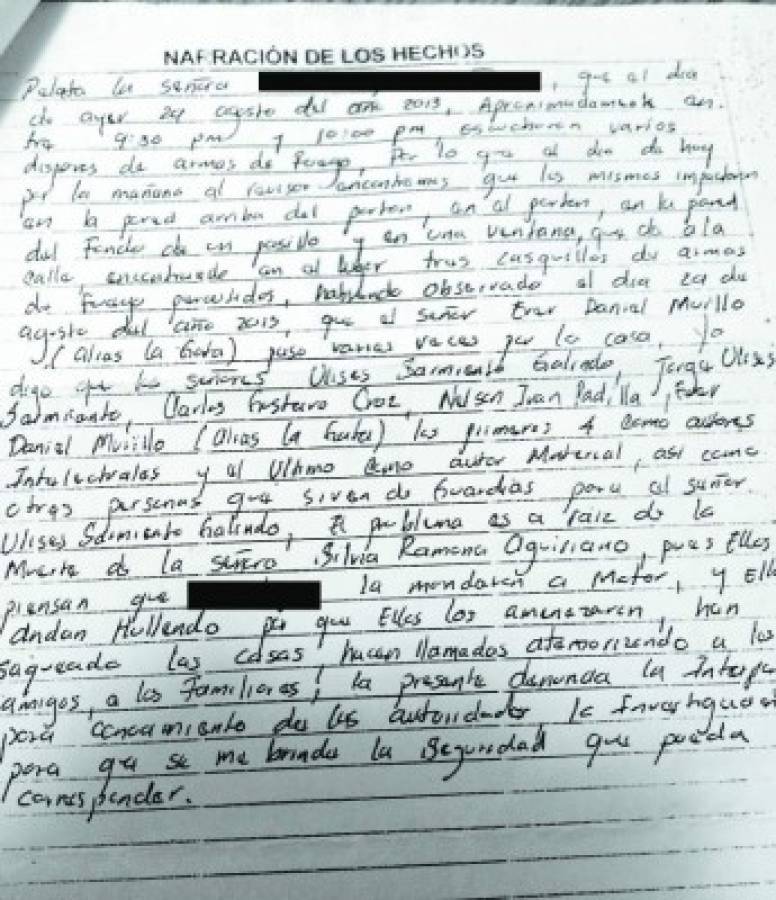 NARRACIÓN DE LOS HECHOS
Relata la señora , que el dia
de ayer 24 agosto del año 2013, Aproximadamente en-
tre 9:30 pm y 10:00 pm, escucharon varios
disparos de armas de Fuego, Por lo que al dia de hoy
por la mañana al revisar encontramos que los mismos impactaron
en la pared arriba del porton, en el porton, en la pared
del Fondo de un pasillo y en una ventana, que da a la
calle, encontrando en el lugar tres casquillos de armas
de Fuego percutidos, habiendo observado el dia 24 de
agosto del año 2013, que el señor Ever Daniel Murillo
(alias la Gata) paso varias veces por la casa, yo
digo que los señores Ulises Sarmiento Galindo, Jorge Ulises
Sarmiento, Carlos Gustavo Cruz, Nelson Ivan Padilla, Ever
Daniel Murillo (alias la Gata) los primeros 4 como autores
Intelectuales y el Ultimo como autor Material, asi como
otras personas que sirven de Guardias para el señor
Ulises Sarmiento Galindo, El problema es a raiz de la
Muerte de la señora Silvia Ramona , pues Ellos
piensan que la mandaron a Matar, y Ellos
andan Hullendo por que Ellos los amenazaron, han
saqueado las casas, hacen llamados atemorizando a los
amigos, a los Familiares, la presente denuncia la Interpo
para conocimiento de las autoridades, le Investiguen
para que se me brinde la Seguridad que pueda
corresponder.